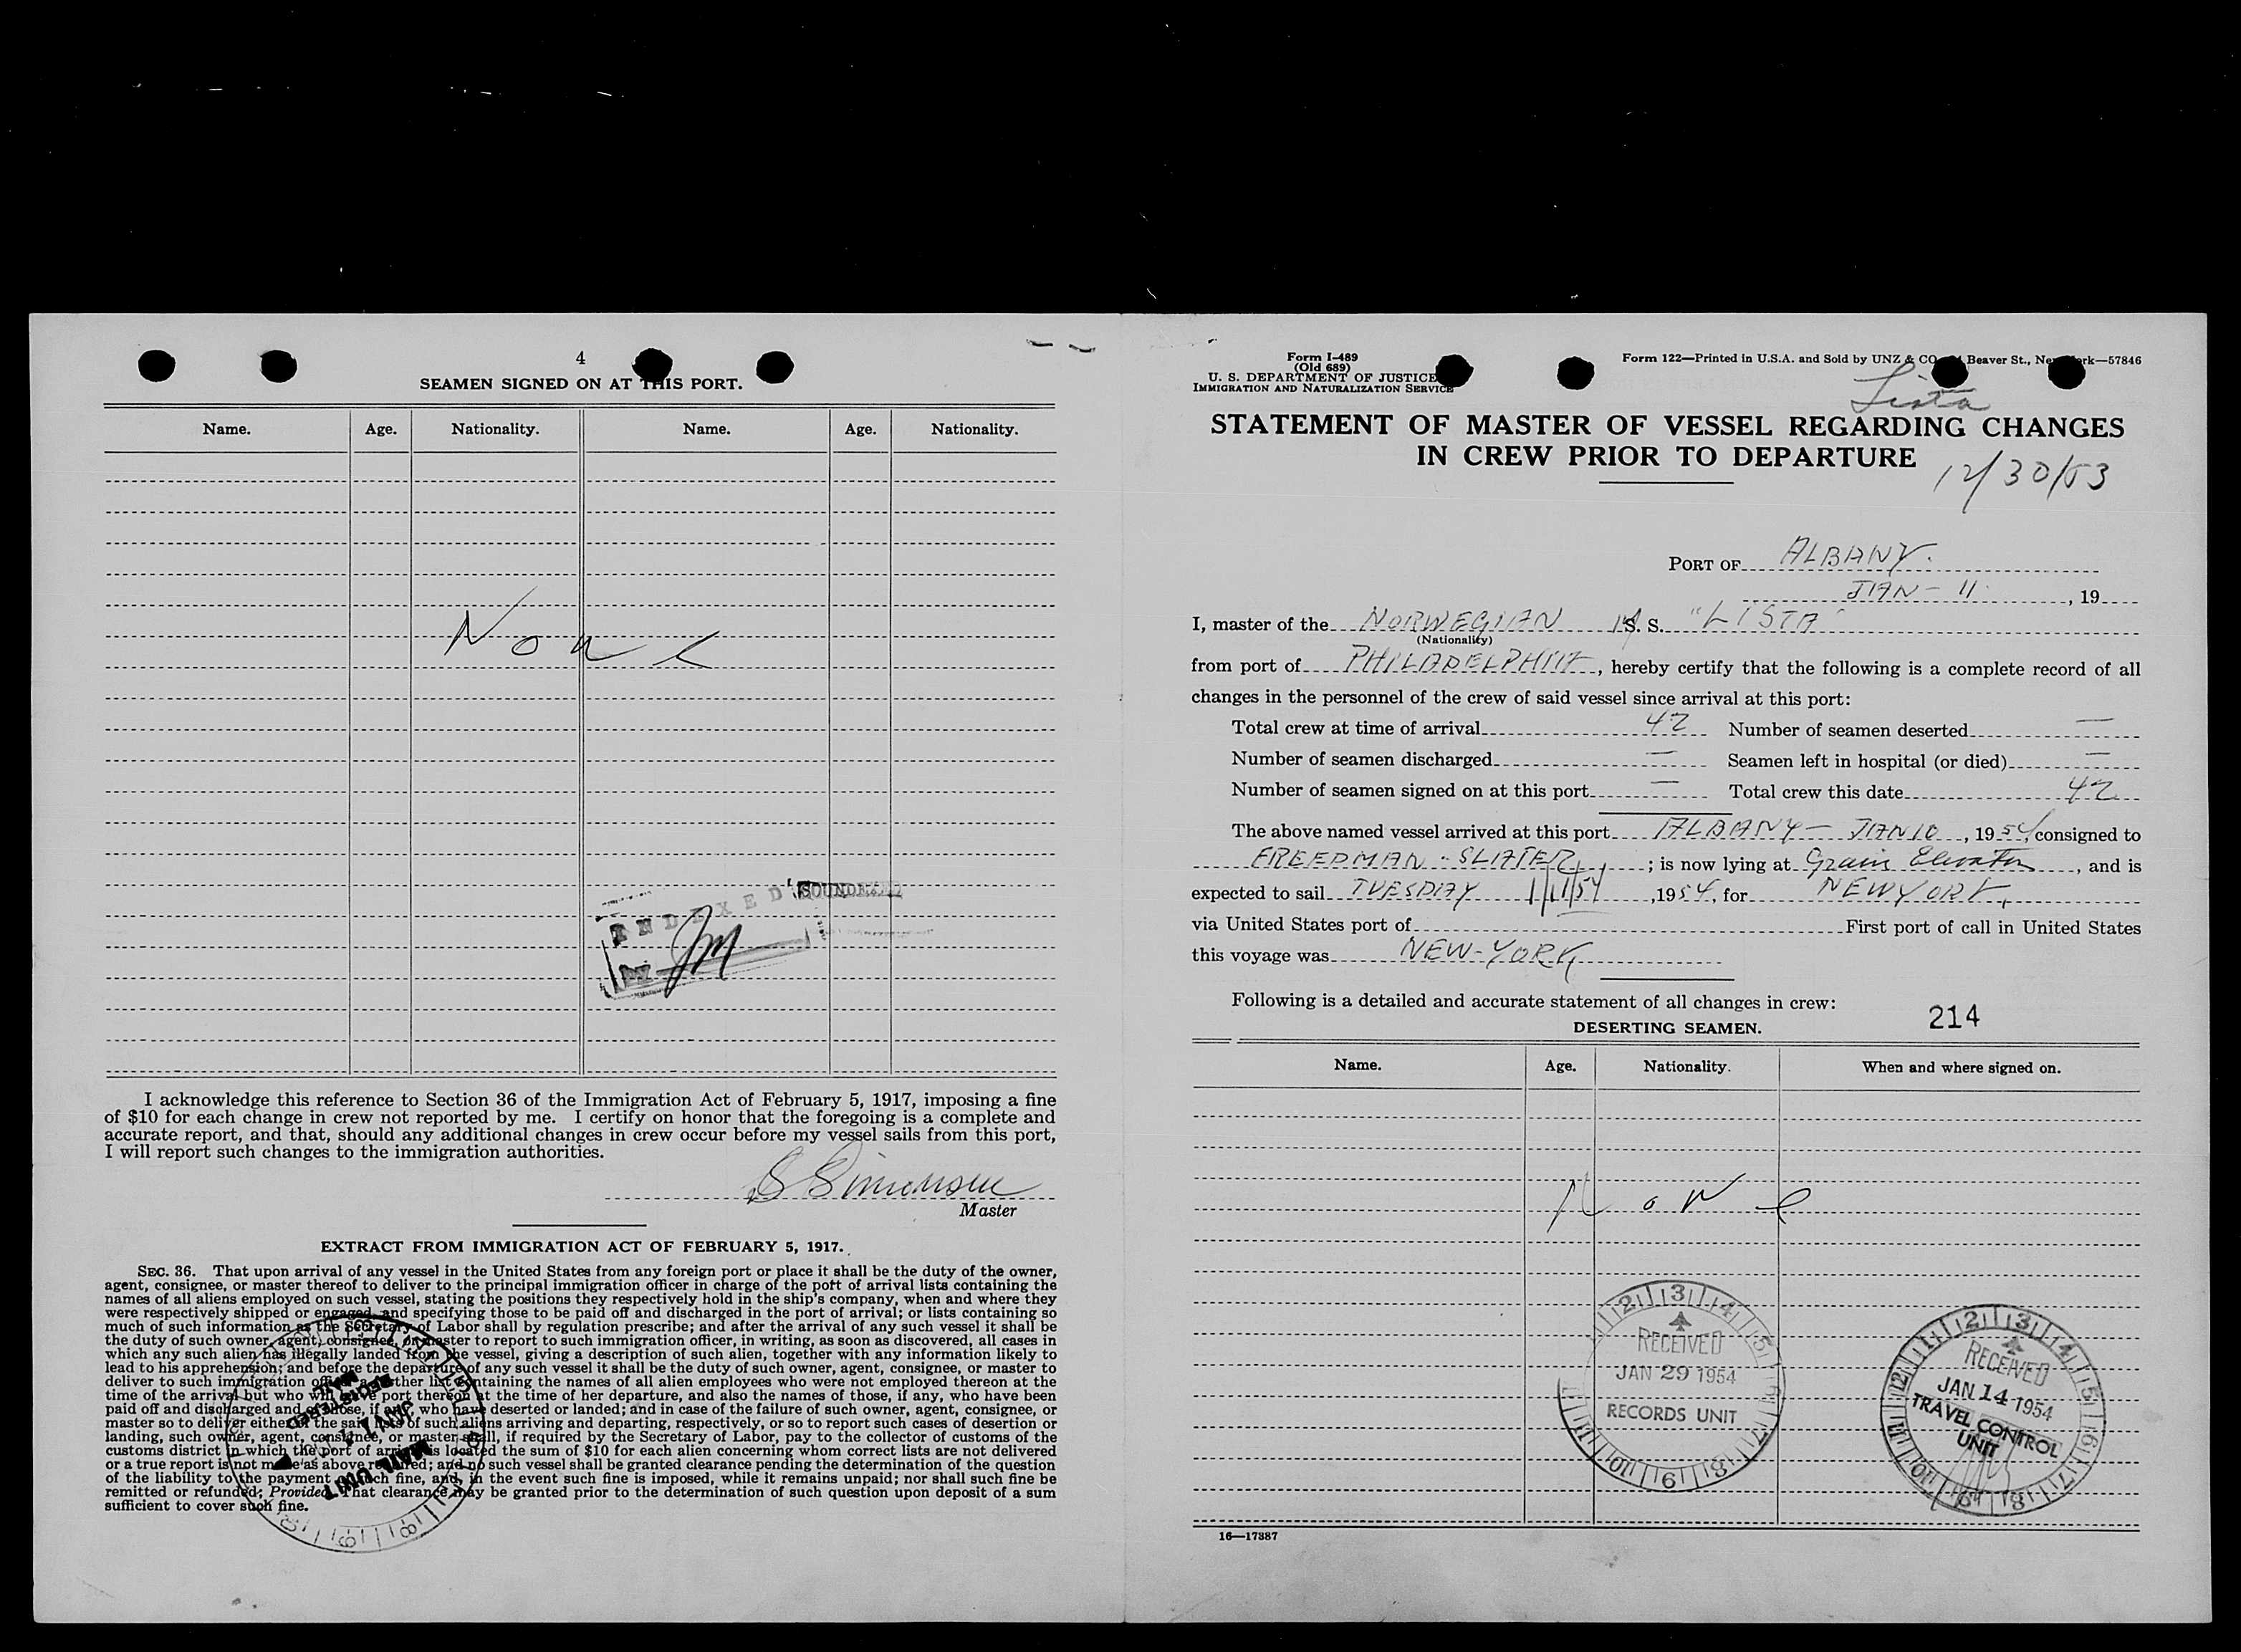 4
SEAMEN SIGNED ON AT THIS PORT.
Name. Age. Nationality. Name. Age. Nationality.
None
INDEXED SOUNDEXED
I acknowledge this reference to Section 36 of the Immigration Act of February 5, 1917, imposing a fine
of $10 for each change in crew not reported by me. I certify on honor that the foregoing is a complete and
accurate report, and that, should any additional changes in crew occur before my vessel sails from this port,
I will report such changes to the immigration authorities.
S Simonsen
Master
EXTRACT FROM IMMIGRATION ACT OF FEBRUARY 5, 1917.
SEC. 36. That upon arrival of any vessel in the United States from any foreign port or place it shall be the duty of the owner,
agent, consignee, or master thereof to deliver to the principal immigration officer in charge of the port of arrival lists containing the
names of all aliens employed on such vessel, stating the positions they respectively hold in the ship's company, when and where they
were respectively shipped or engaged, and specifying those to be paid off and discharged in the port of arrival; or lists containing so
much of such information as the Secretary of Labor shall by regulation prescribe; and after the arrival of any such vessel it shall be
the duty of such owner, agent, consignee, or master to report to such immigration officer, in writing, as soon as discovered, all cases in
which any such alien has illegally landed from the vessel, giving a description of such alien, together with any information likely to
lead to his apprehension; and before the departure of any such vessel it shall be the duty of such owner, agent, consignee, or master to
deliver to such immigration officer a further list containing the names of all alien employees who were not employed thereon at the
time of the arrival but who will leave port thereon at the time of her departure, and also the names of those, if any, who have been
paid off and discharged and of those, if any, who have deserted or landed; and in case of the failure of such owner, agent, consignee, or
master so to deliver either of the said lists of such aliens arriving and departing, respectively, or so to report such cases of desertion or
landing, such owner, agent, consignee, or master shall, if required by the Secretary of Labor, pay to the collector of customs of the
customs district in which the port of arrival is located the sum of $10 for each alien concerning whom correct lists are not delivered
or a true report is not made as above required; and no such vessel shall be granted clearance pending the determination of the question
of the liability to the payment of such fine, and, in the event such fine is imposed, while it remains unpaid; nor shall such fine be
remitted or refunded; Provided, That clearance may be granted prior to the determination of such question upon deposit of a sum
sufficient to cover such fine.
REGISTERED
MAIL UNIT
Form I-489
(Old 689)
U. S. DEPARTMENT OF JUSTICE
IMMIGRATION AND NATURALIZATION SERVICE
Form 122—Printed in U.S.A. and Sold by UNZ & CO Beaver St., New York—57846
Lista
STATEMENT OF MASTER OF VESSEL REGARDING CHANGES
IN CREW PRIOR TO DEPARTURE
12/30/53
PORT OF ALBANY.
JAN - 11 , 19
I, master of the NORWEGIAN M. S. "LISTA"
(Nationality)
from port of PHILADELPHIA, hereby certify that the following is a complete record of all
changes in the personnel of the crew of said vessel since arrival at this port:
Total crew at time of arrival 42 Number of seamen deserted —
Number of seamen discharged — Seamen left in hospital (or died) —
Number of seamen signed on at this port — Total crew this date 42
The above named vessel arrived at this port ALBANY - JAN 10, 1954 consigned to
FREEDMAN - SLATER; is now lying at Grain Elevator, and is
expected to sail TUESDAY 1/11/54, 1954, for NEW YORK,
via United States port of First port of call in United States
this voyage was NEW-YORK
Following is a detailed and accurate statement of all changes in crew:
214
DESERTING SEAMEN.
Name. Age. Nationality. When and where signed on.
None
RECEIVED
JAN 29 1954
RECORDS UNIT
RECEIVED
JAN 14 1954
TRAVEL CONTROL
UNIT
16—17387